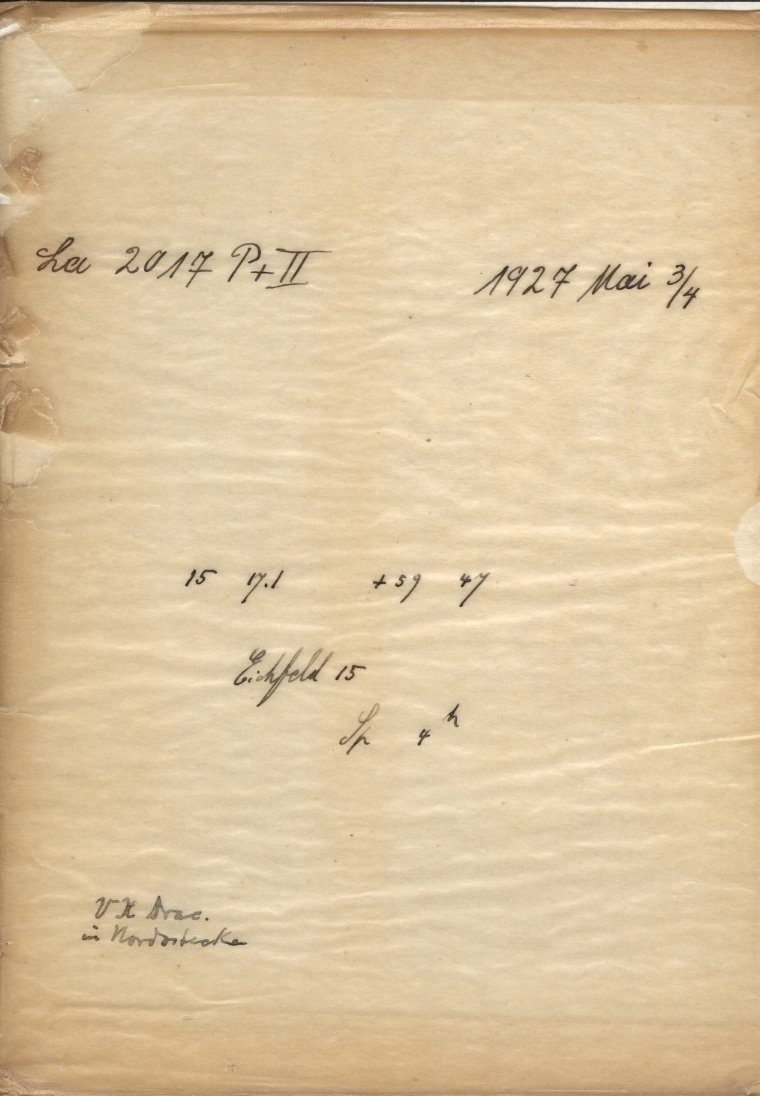 La 2017 P+II 1927 Mai 3/4
15 17.1 +59 47
Eichfeld 15
Sp 4h
VX Drac.
in Nordostecke